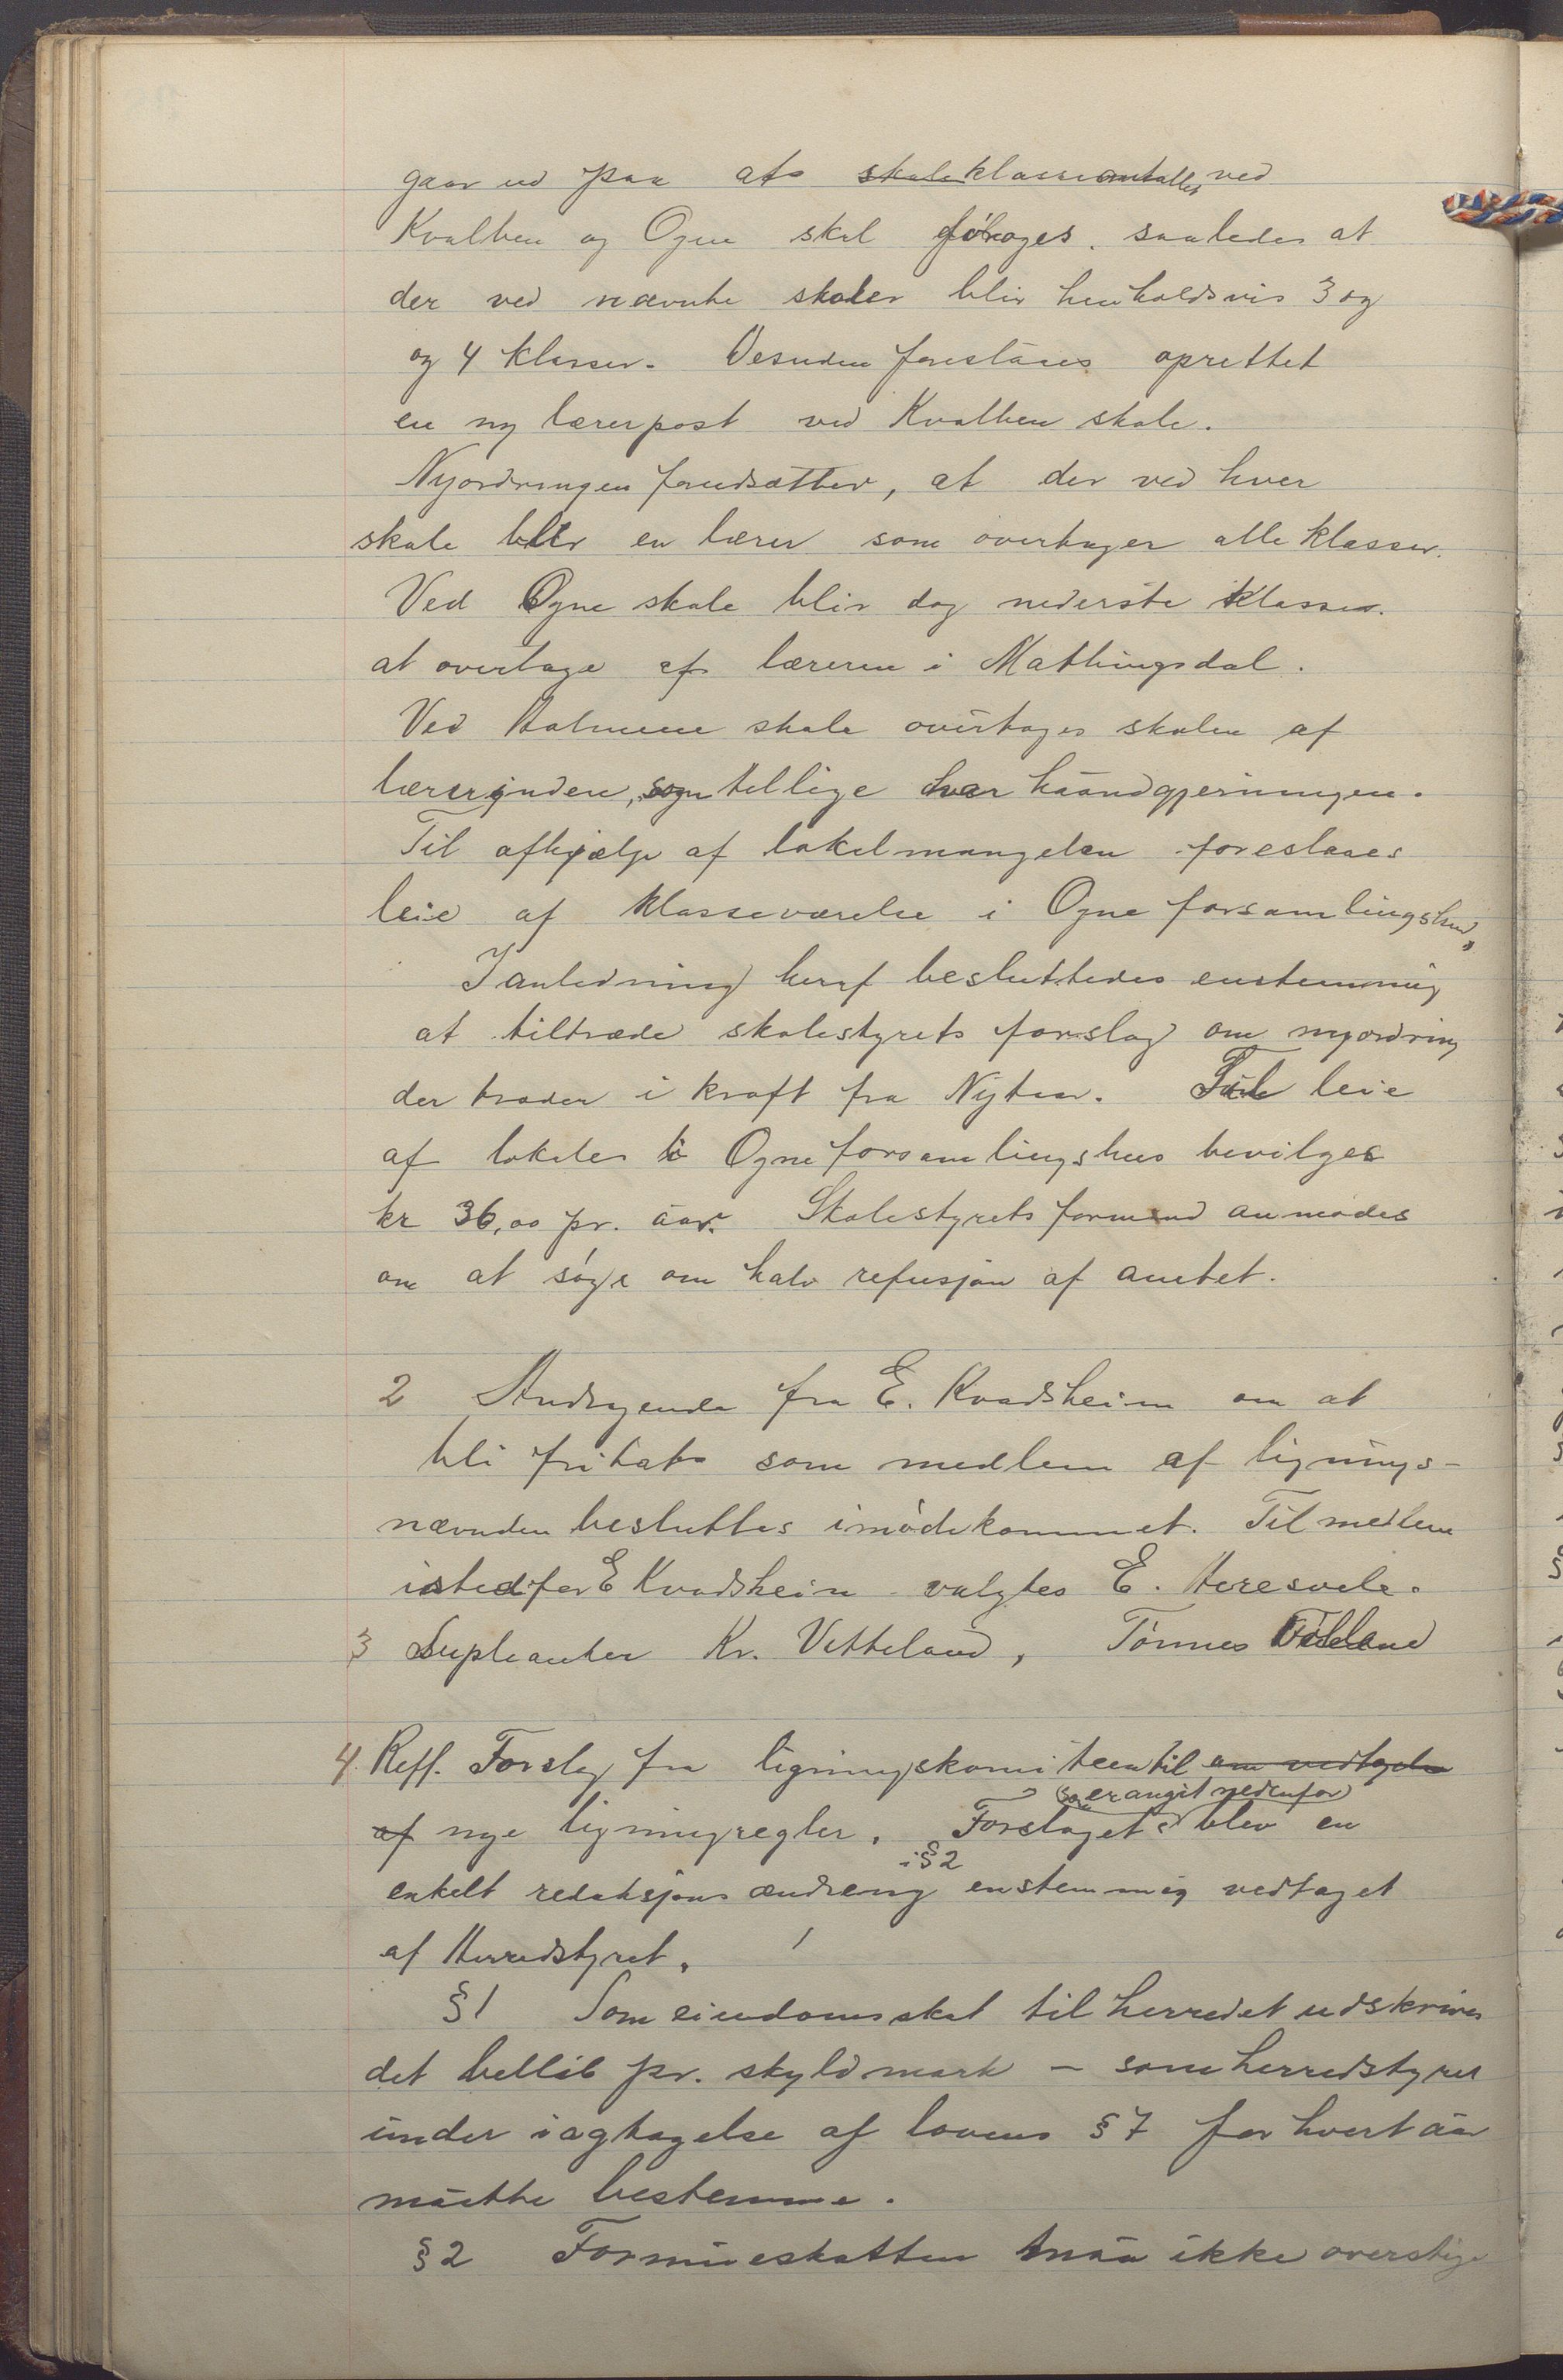 gaar ud paa at skoleklasseantallet ved
Kvalben og Ogne skal forøges, saaledes at
der ved nævnte skoler blir henholdsvis 3 og
og 4 klasser. Desuden foreslåes oprettet
en ny lærerpost ved Kvalben skole.
Nyordningen forudsætter, at der ved hver
skole blir en lærer som overtager alle klasser.
Ved Ogne skole blir dog nederste klasser.
at overtage af læreren i Mattingsdal.
Ved Holmene skole overtages skolen af
lærerinden, som tillige har håandgjerningen.
Til afhjælp af lokalmangelen foreslaaes
leie af klasseværelse i Ogne forsamlingshus,
I anledning heraf besluttedes enstemmig
at tiltræde skolestyrets forslag om nyordning
der træder i kraft fra Nytaar. Til leie
af lokaler i Ogne forsamlingshus bevilges
kr 36,00 pr. åar. Skolestyrets formand anmodes
om at søge om halv refusjon af amtet.
2 Andragende fra E. Kvadsheim om at
bli fritat som medlem af lignings-
nævnden besluttes imødekommet. Til medlem
istedfor E Kvadsheim valgtes E. Heresvela.
3 Supleanter Kr. Vetteland, Tønnes
4. Reff. Forslag fra ligningskomiteen til om vedtagelse
af nye ligningsregler. Forslaget (som er angit nedenfor) blev en
enkelt redaksjons ændreng i § 2 enstemmig vedtaget
af Herredstyret.
§ 1 Som eiendomsskat til herredet udskrives
det belløb pr. skyldmark – som herredstyret
under iagtagelse af lovens § 7 for hvert åar
måatte bestemme.
§ 2 Formueskatten måa ikke overstige